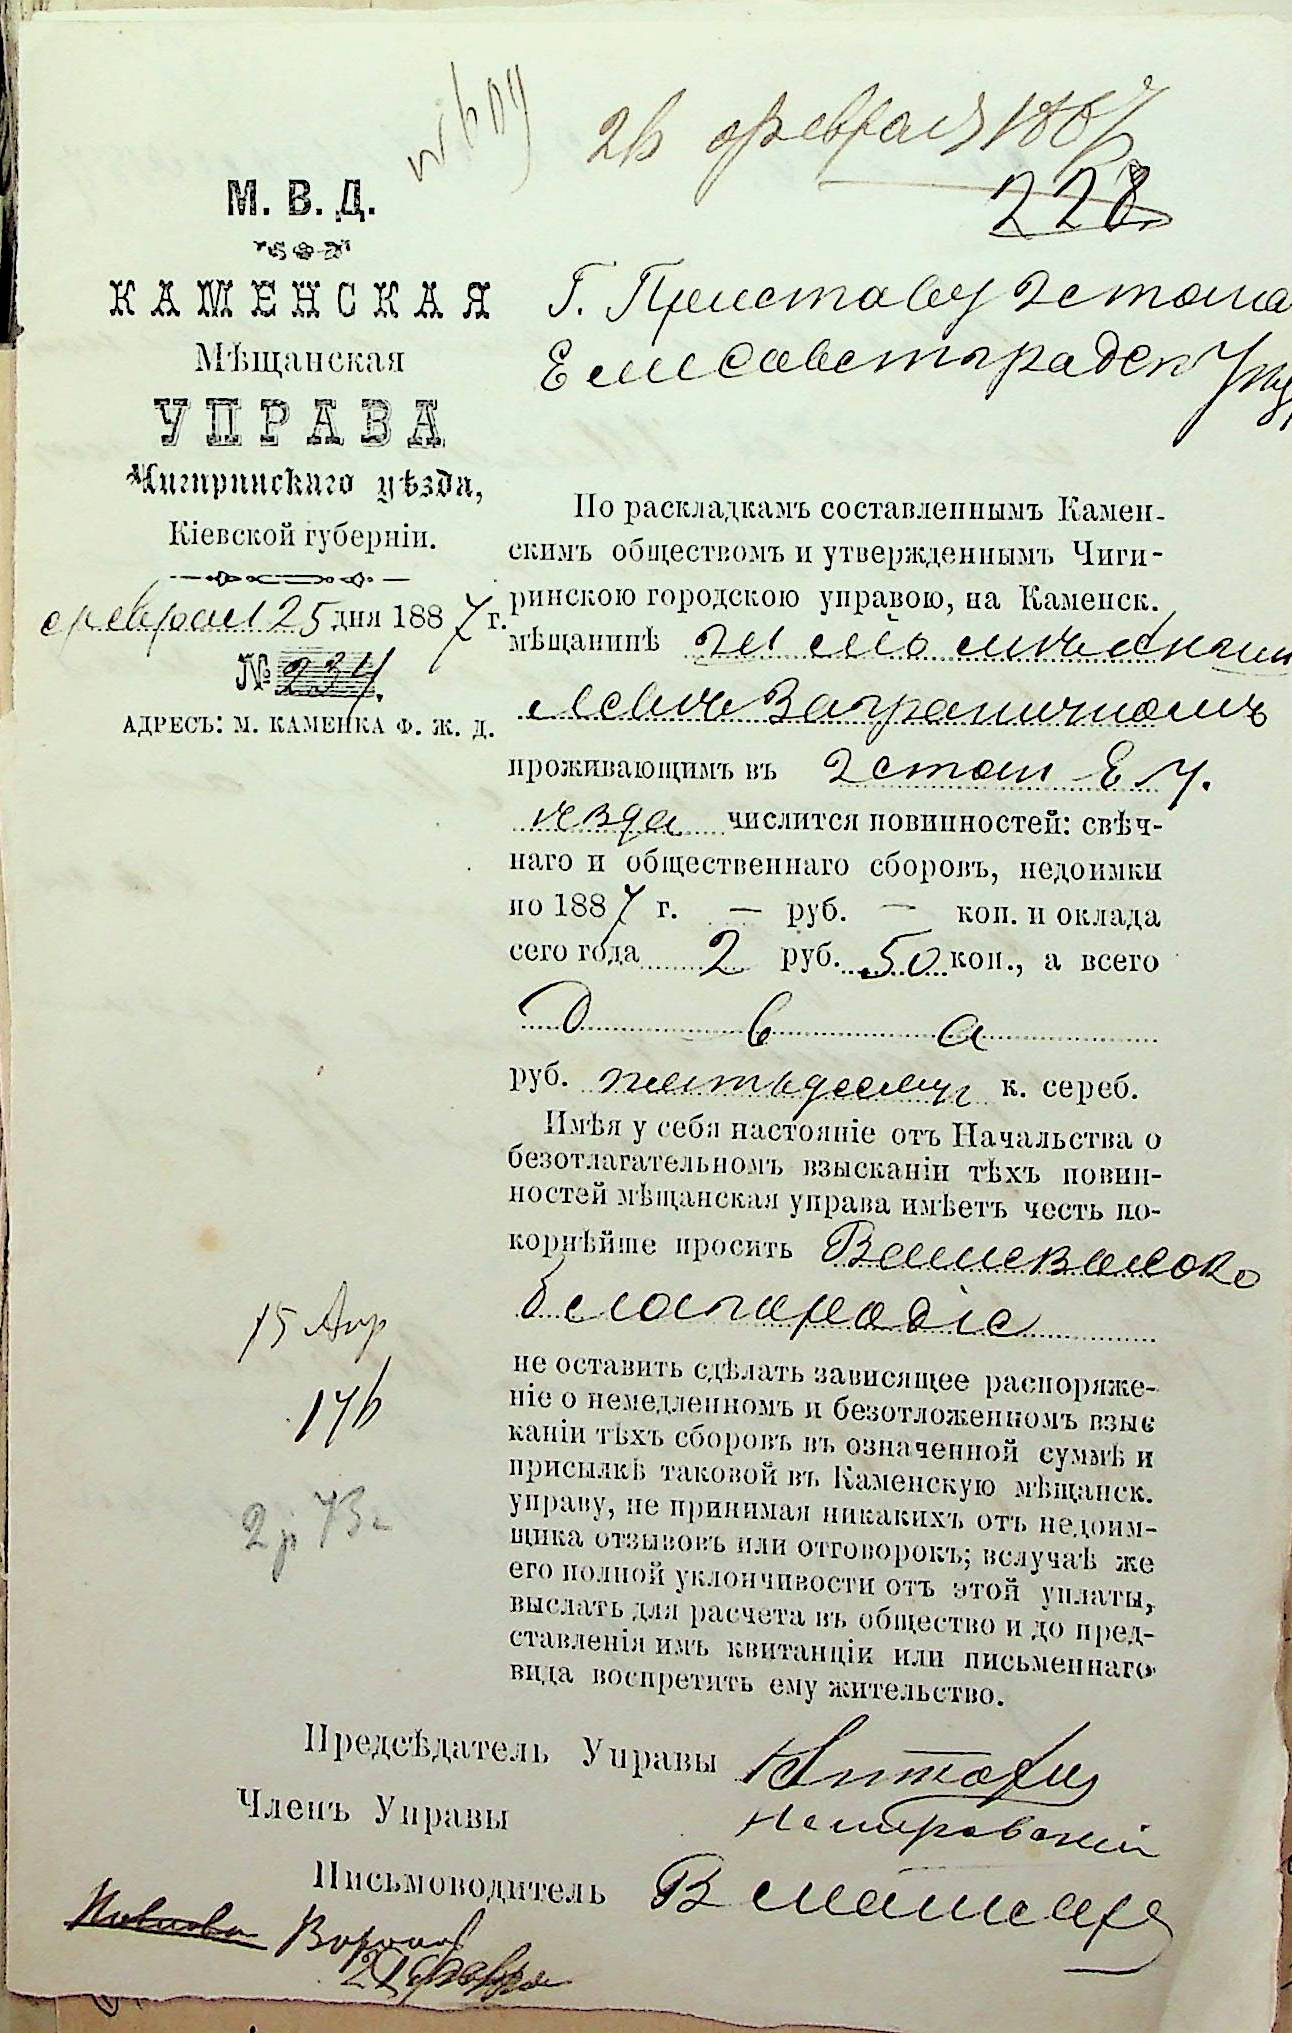 № 609
26 февраля 1887
228
М. В. Д.
КАМЕНСКАЯ
Мѣщанская
УПРАВА
Чигиринскаго уѣзда,
Кіевской губерніи.
февраля 25 дня 1887 г.
№ 234.
АДРЕСЪ: М. КАМЕНКА Ф. Ж. Д.
Г. Приставу 2 стана
Елисаветградск Уѣзд
По раскладкамъ составленнымъ Камен-
скимъ обществомъ и утвержденнымъ Чиги-
ринскою городскою управою, на Каменск.
мѣщанинѣ
Заграничномъ
проживающимъ въ 2 стан Е У.
уезда числится повинностей: свѣч-
наго и общественнаго сборовъ, недоимки
по 1887 г. — руб. — коп. и оклада
сего года 2 руб. 50 коп., а всего
Два
руб. пятьдесят к. сереб.
Имѣя у себя настояніе отъ Начальства о
безотлагательномъ взысканіи тѣхъ повин-
ностей мѣщанская управа имѣетъ честь по-
корнѣйше просить Ваше Высоко
благородіе
не оставить сдѣлать зависящее распоряже-
ніе о немедленномъ и безотложенномъ взыс
каніи тѣхъ сборовъ въ означенной суммѣ и
присылкѣ таковой въ Каменскую мѣщанск.
управу, не принимая никакихъ отъ недоим-
щика отзывовъ или отговорокъ; вслучаѣ же
его полной уклончивости отъ этой уплаты,
выслать для расчета въ общество и до пред-
ставленія имъ квитанціи или письменнаго
вида воспретить ему жительство.
15 Апр
176
2 р 73 к
Предсѣдатель Управы
Членъ Управы Немировскій
Письмоводитель
27 февра